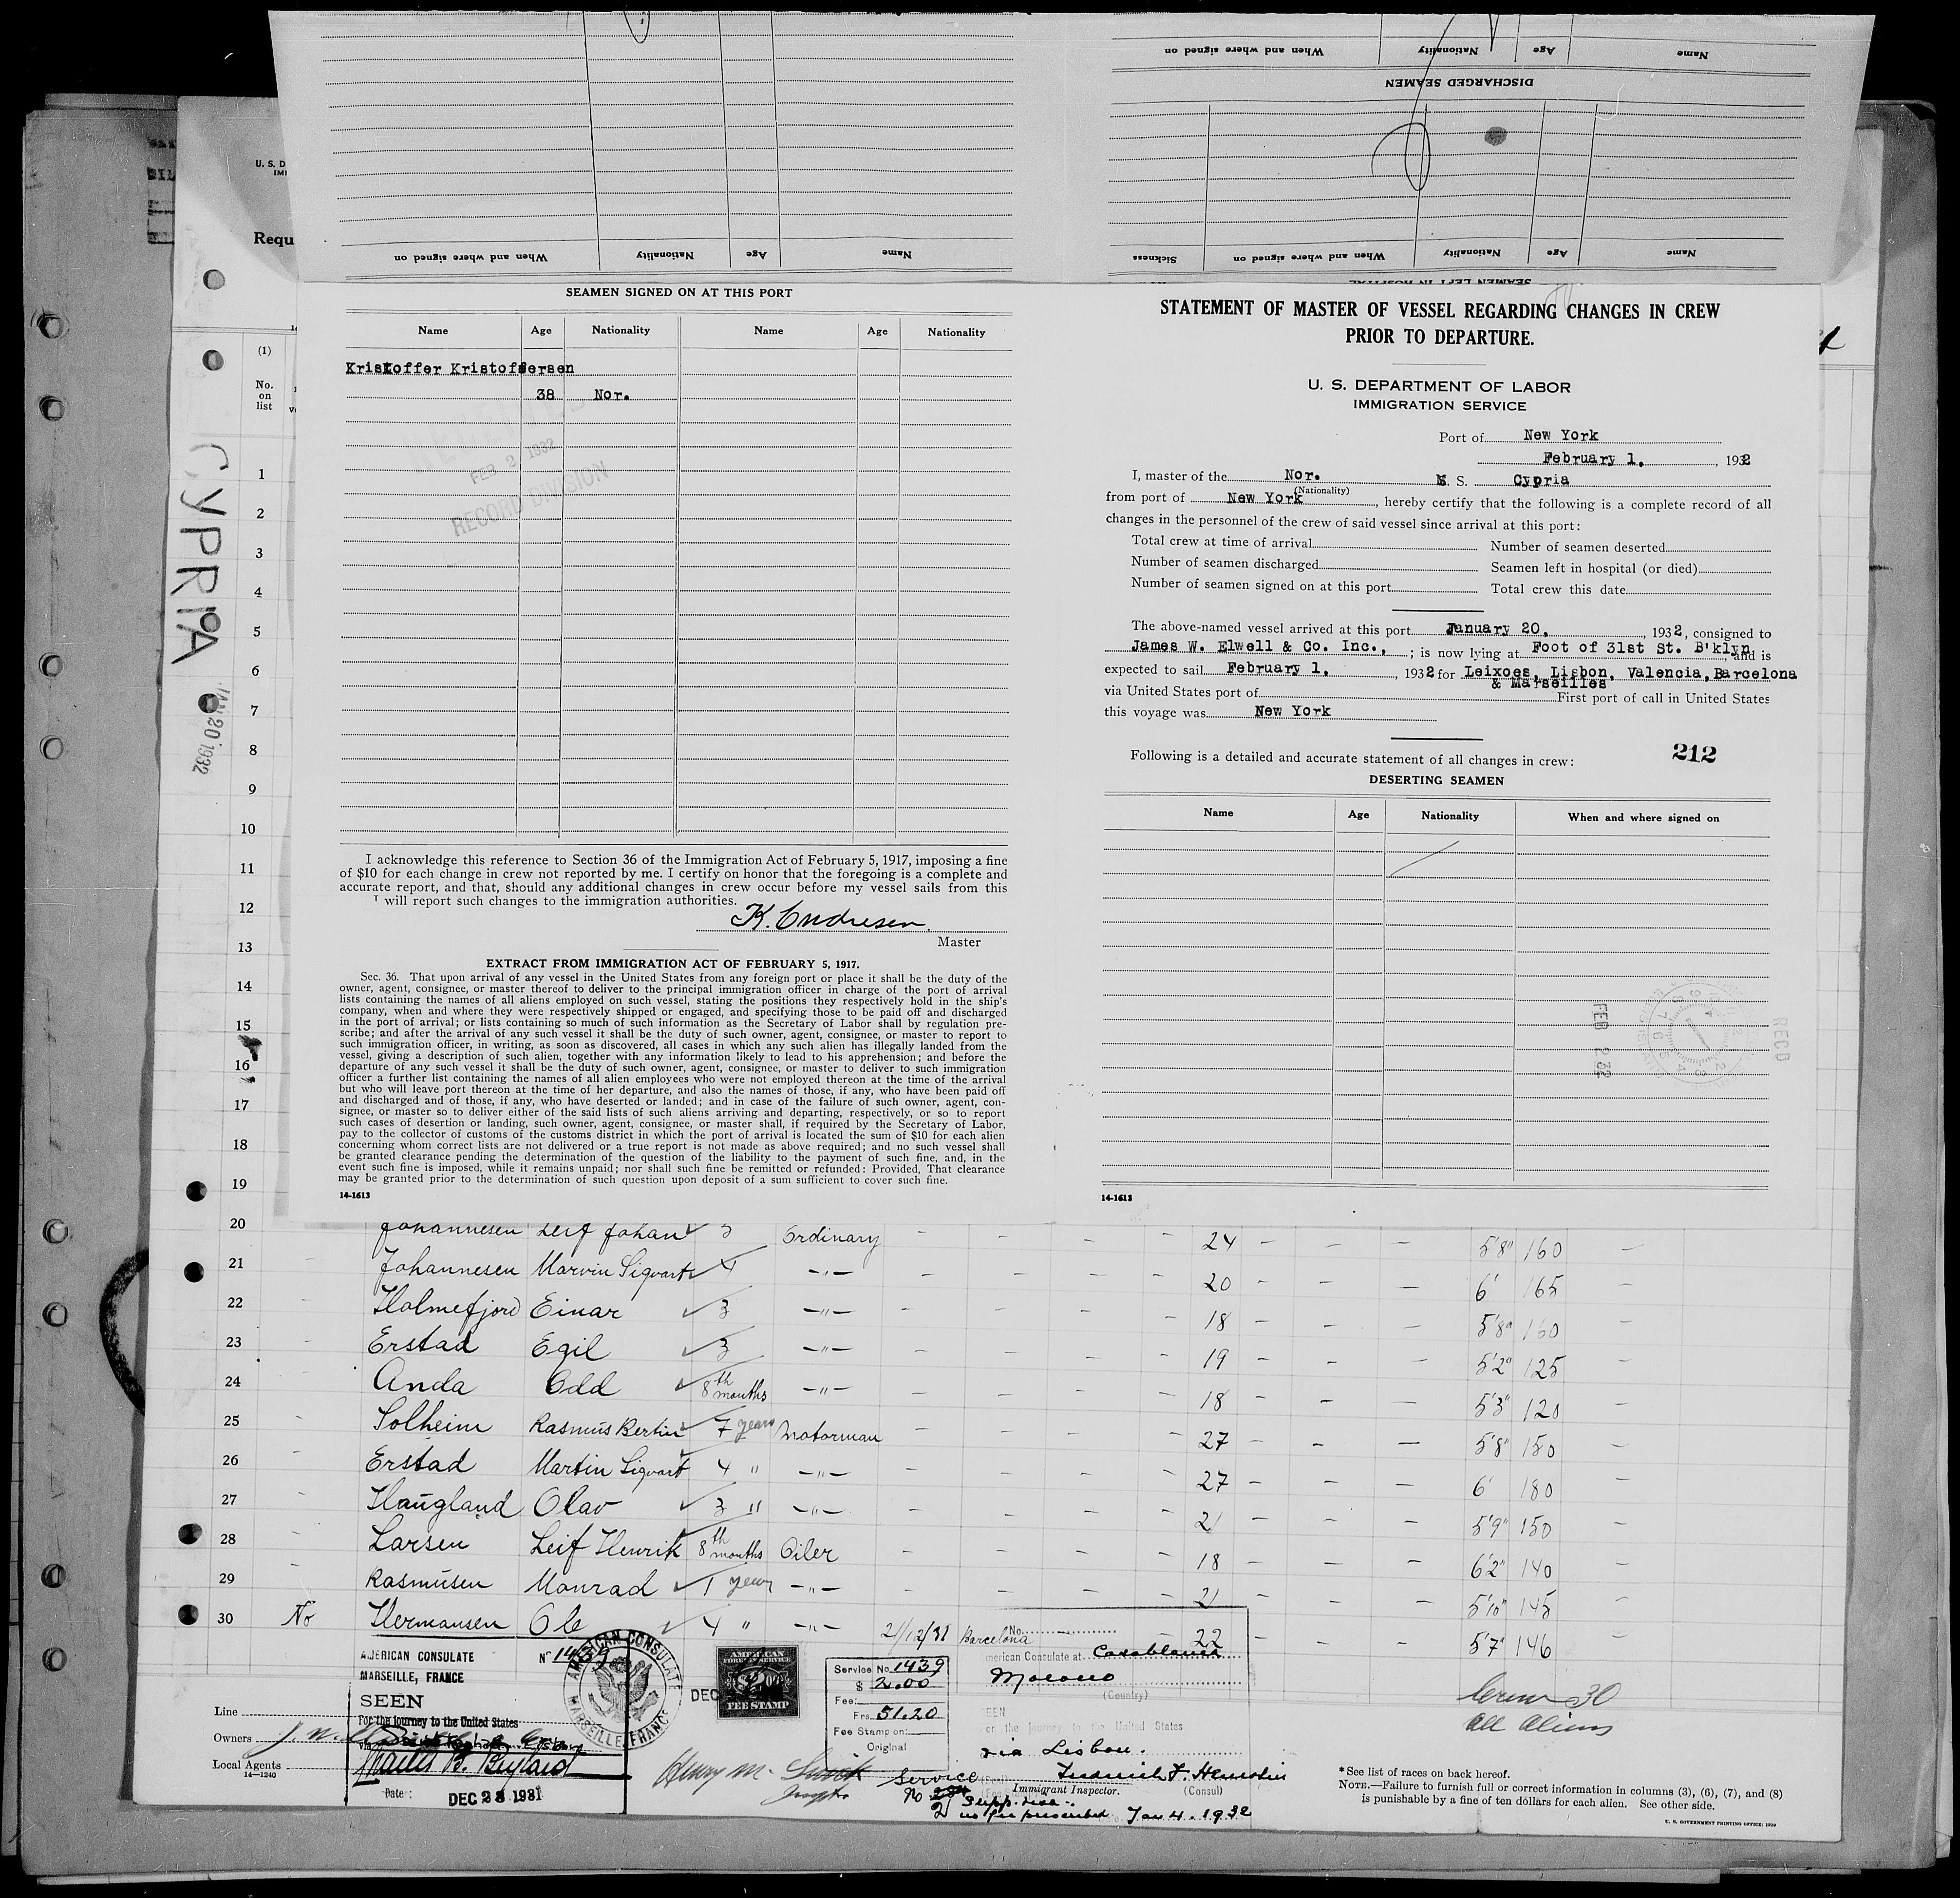 When and where signed on Nationality Age Name
When and where signed on Nationality Age Name
DISCHARGED SEAMEN
Sickness When and where signed on Nationality Age Name
SEAMEN LEFT IN HOSPITAL
U. S. D
IMI
Requ
(1)
No.
on
list
CYPRIA
JAN 20 1932
1
2
3
4
5
6
7
8
9
10
11
12
13
14
15
16
17
18
19
SEAMEN SIGNED ON AT THIS PORT
Name Age Nationality Name Age Nationality
Kristoffer Kristoffersen
38 Nor.
FEB 2 1932
RECORD DIVISION
I acknowledge this reference to Section 36 of the Immigration Act of February 5, 1917, imposing a fine
of $10 for each change in crew not reported by me. I certify on honor that the foregoing is a complete and
accurate report, and that, should any additional changes in crew occur before my vessel sails from this
I will report such changes to the immigration authorities.
K. Andresen.
Master
EXTRACT FROM IMMIGRATION ACT OF FEBRUARY 5, 1917.
Sec. 36. That upon arrival of any vessel in the United States from any foreign port or place it shall be the duty of the
owner, agent, consignee, or master thereof to deliver to the principal immigration officer in charge of the port of arrival
lists containing the names of all aliens employed on such vessel, stating the positions they respectively hold in the ship's
company, when and where they were respectively shipped or engaged, and specifying those to be paid off and discharged
in the port of arrival; or lists containing so much of such information as the Secretary of Labor shall by regulation pre-
scribe; and after the arrival of any such vessel it shall be the duty of such owner, agent, consignee, or master to report to
such immigration officer, in writing, as soon as discovered, all cases in which any such alien has illegally landed from the
vessel, giving a description of such alien, together with any information likely to lead to his apprehension; and before the
departure of any such vessel it shall be the duty of such owner, agent, consignee, or master to deliver to such immigration
officer a further list containing the names of all alien employees who were not employed thereon at the time of the arrival
but who will leave port thereon at the time of her departure, and also the names of those, if any, who have been paid off
and discharged and of those, if any, who have deserted or landed; and in case of the failure of such owner, agent, con-
signee, or master so to deliver either of the said lists of such aliens arriving and departing, respectively, or so to report
such cases of desertion or landing, such owner, agent, consignee, or master shall, if required by the Secretary of Labor,
pay to the collector of customs of the customs district in which the port of arrival is located the sum of $10 for each alien
concerning whom correct lists are not delivered or a true report is not made as above required; and no such vessel shall
be granted clearance pending the determination of the question of the liability to the payment of such fine, and, in the
event such fine is imposed, while it remains unpaid; nor shall such fine be remitted or refunded: Provided, That clearance
may be granted prior to the determination of such question upon deposit of a sum sufficient to cover such fine.
14-1613
STATEMENT OF MASTER OF VESSEL REGARDING CHANGES IN CREW
PRIOR TO DEPARTURE.
U. S. DEPARTMENT OF LABOR
IMMIGRATION SERVICE
Port of New York
February 1, 1932
I, master of the Nor. M. S. Cypria
(Nationality)
from port of New York, hereby certify that the following is a complete record of all
changes in the personnel of the crew of said vessel since arrival at this port:
Total crew at time of arrival Number of seamen deserted
Number of seamen discharged Seamen left in hospital (or died)
Number of seamen signed on at this port Total crew this date
The above-named vessel arrived at this port January 20, 1932, consigned to
James W. Elwell & Co. Inc., ; is now lying at Foot of 31st St. B'klyn, and is
expected to sail February 1, 1932 for Leixoes, Lisbon, Valencia, Barcelona
& Marseilles
via United States port of First port of call in United States
this voyage was New York
212
Following is a detailed and accurate statement of all changes in crew:
DESERTING SEAMEN
Name Age Nationality When and where signed on
FEB 2 32
RECD
14-1613
20 Johannesen Leif Johan 3 Ordinary - - - - 24 - - - 5'8" 160 -
21 Johannesen Marvin Sigvart 4 -"- - - - - 20 - - - 6' 165 -
22 Holmefjord Einar 3 -"- - - - - 18 - - - 5'8" 160 -
23 Erstad Egil 3 -"- - - - - 19 - - - 5'2" 125 -
24 Anda Odd 8th months -"- - - - - 18 - - - 5'3" 120 -
25 Solheim Rasmus Bertin 7 years Motorman - - - - 27 - - - 5'8" 150 -
26 Erstad Martin Sigvart 4 " -"- - - - - 27 - - - 6' 180 -
27 Haugland Olav 3 " -"- - - - - 21 - - - 5'9" 150 -
28 Larsen Leif Henrik 8th months Oiler - - - - 18 - - - 6'2" 140 -
29 Rasmusen Monrad 1 year -"- - - - - 21 - - - 5'10" 145 -
30 No Hermansen Ole 4 " -"- 21/12/31 Barcelona - 22 - - - 5'7" 146 -
Crew 30
All Aliens
AMERICAN CONSULATE No 1439
MARSEILLE, FRANCE
SEEN
For the journey to the United States
via
Date: DEC 23 1931
AMERICAN CONSULATE
MARSEILLE, FRANCE
AMERICAN
FOREIGN SERVICE
$2.00
FEE STAMP
DEC
Service No. 1439
$ 2.00
Fee:
Frs. 51.20
Fee Stamp on:
Original
No.
American Consulate at Casablanca
Morocco
(Country)
SEEN
for the journey to the United States
via Lisbon.
(Consul)
Immigrant Inspector.
Service
No
Supp. visa
no fee prescribed Jan 4. 1932
Henry M.
Line
Owners J. W.
Local Agents
14-1240
*See list of races on back hereof.
NOTE.—Failure to furnish full or correct information in columns (3), (6), (7), and (8)
is punishable by a fine of ten dollars for each alien. See other side.
U. S. GOVERNMENT PRINTING OFFICE: 1929